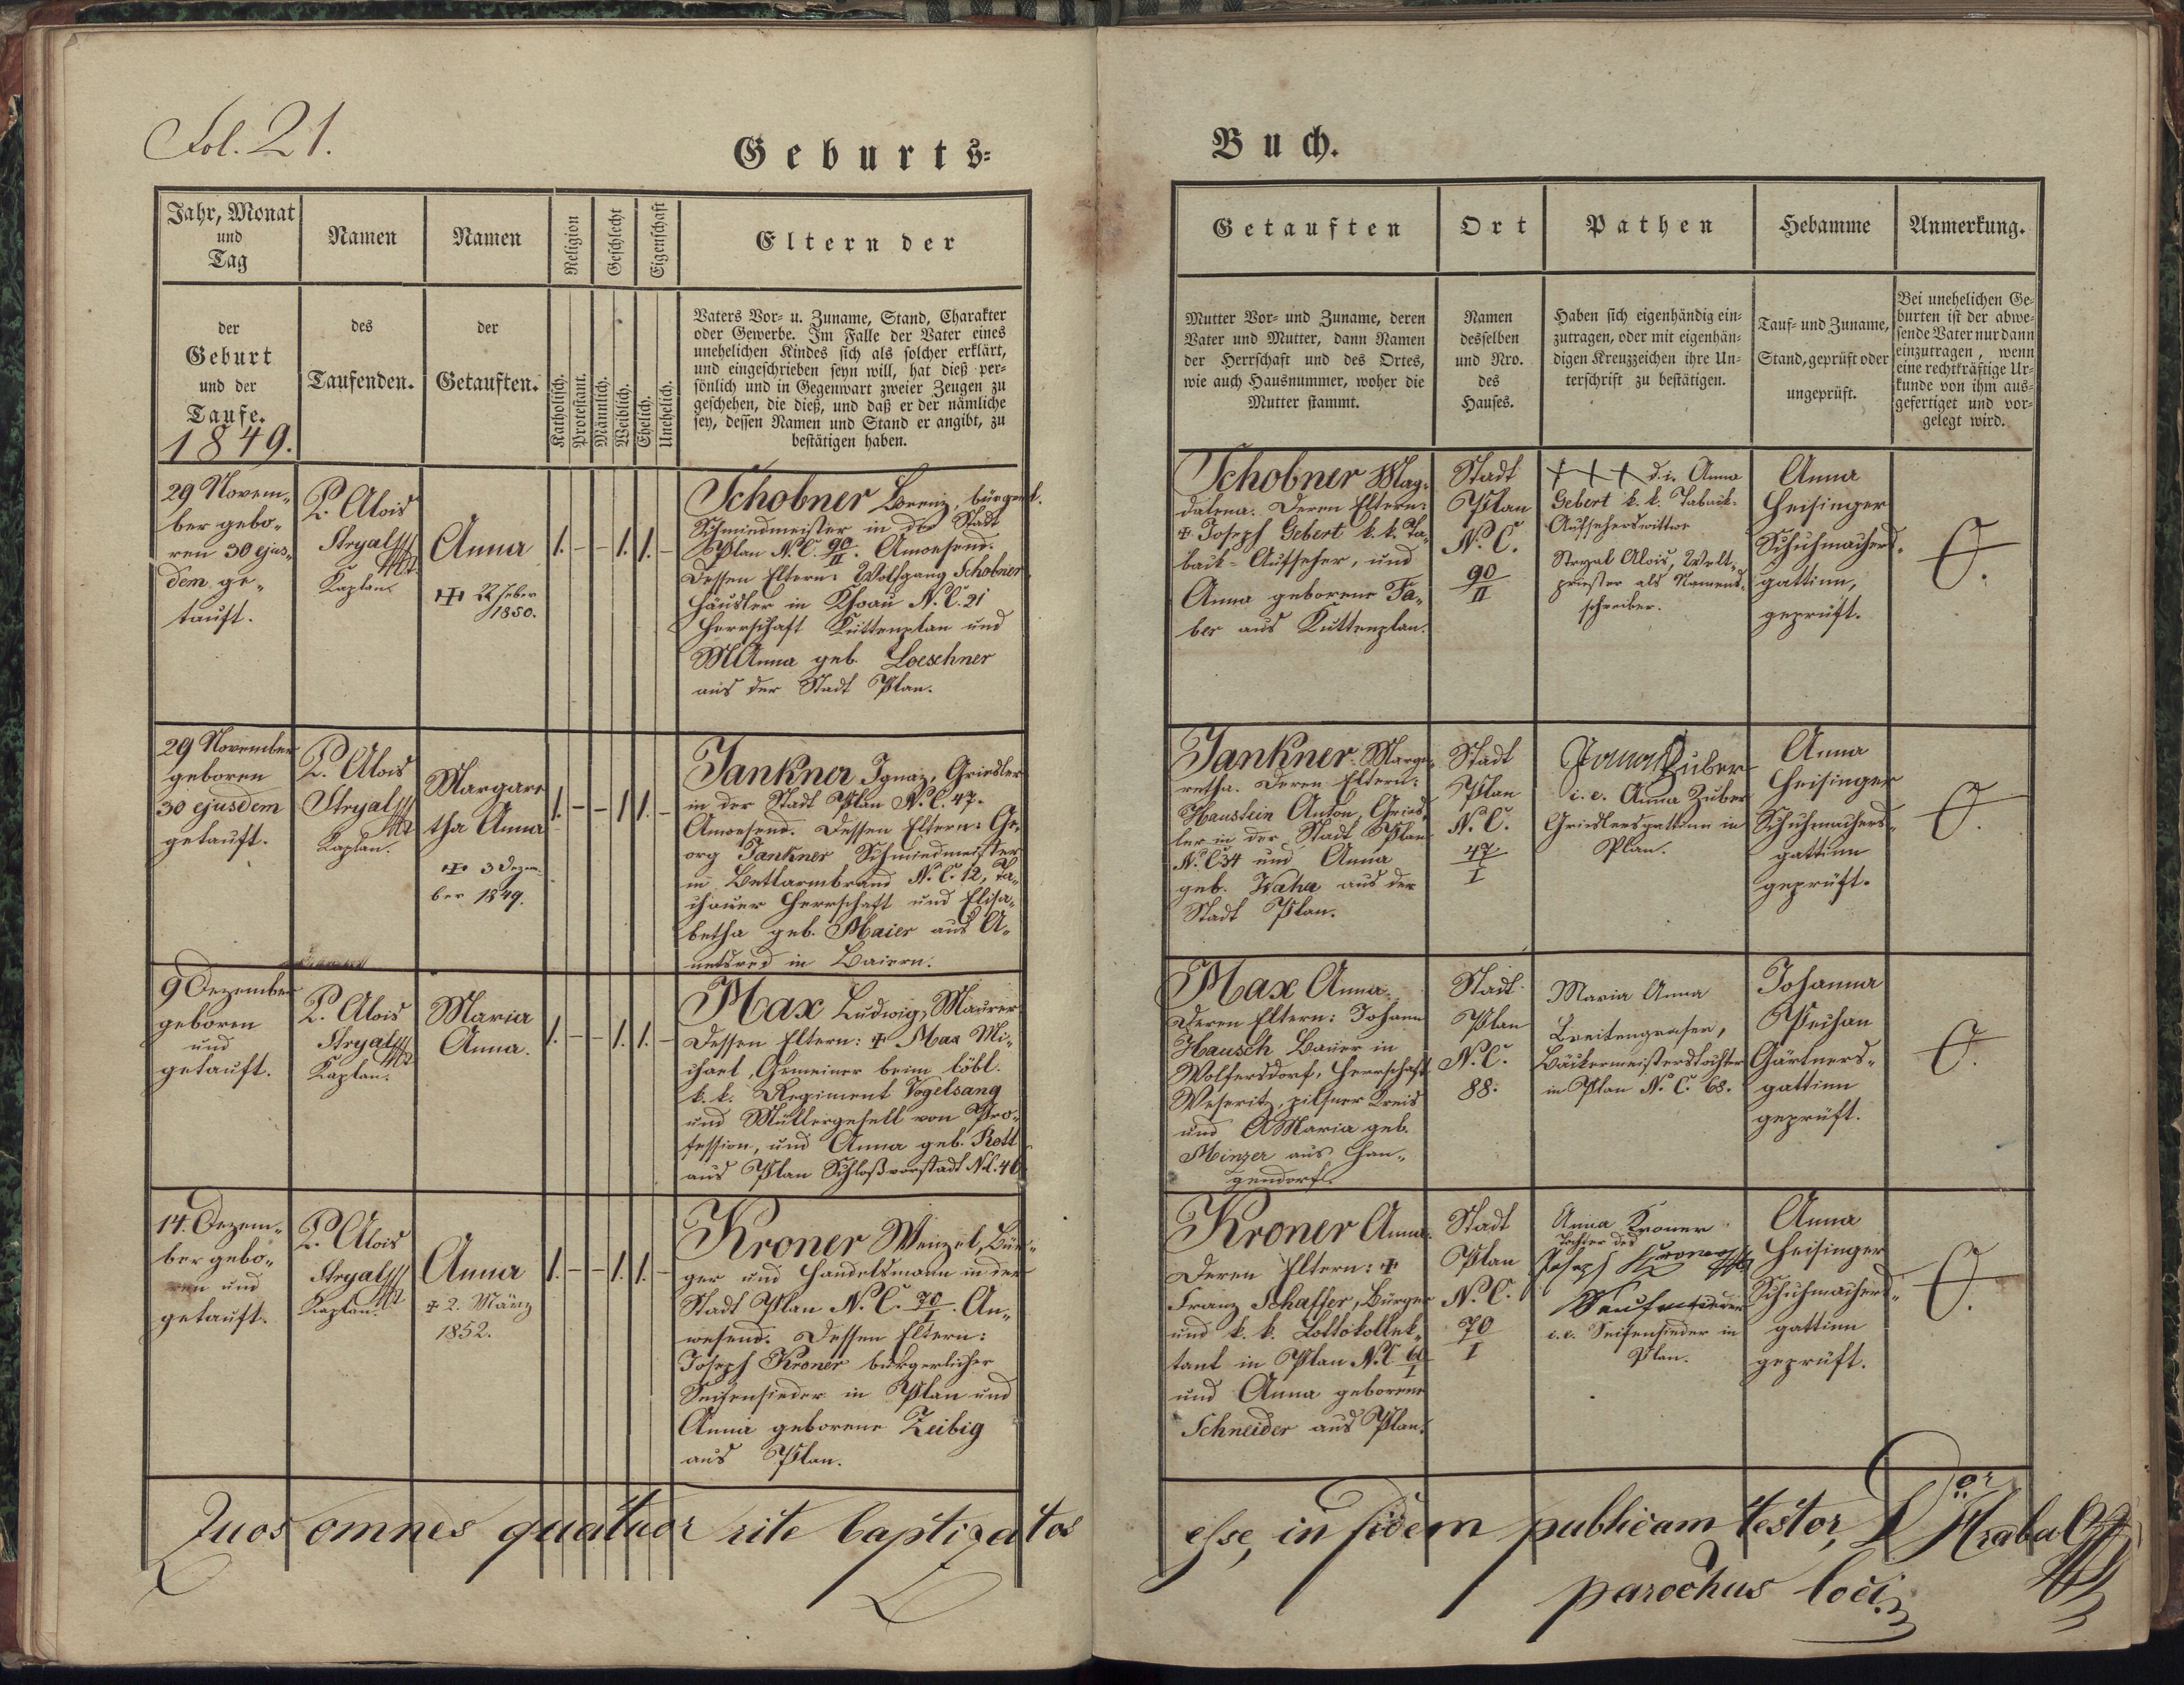 Fol. 21.
Geburts=
Jahr, Monat
und
Tag
der
Geburt
und der
Taufe.
1849.
Namen
des
Taufenden.
Namen
der
Getauften.
Religion
Katholisch.
Protestant.
Geschlecht
Männlich.
Weiblich.
Eigenschaft
Ehelich.
Unehelich.
Eltern der
Vaters Vor- u. Zuname, Stand, Charakter
oder Gewerbe. Im Falle der Vater eines
unehelichen Kindes sich als solcher erklärt,
und eingeschrieben seyn will, hat dieß per-
sönlich und in Gegenwart zweier Zeugen zu
geschehen, die dieß, und daß er der nämliche
sey, dessen Namen und Stand er angibt, zu
bestätigen haben.
29 Novem-
ber gebo-
ren 30 ejus-
dem ge-
tauft.
P. Alois
Stryal
Kaplan.
Anna
22 Feber
1850.
1. – – 1. 1. –
Schobner Lorenz, bürgerl.
Schmiedmeister in der Stadt
Plan N.C. 90/II. Anwesend.
Dessen Eltern: Wolfgang Schobner
Häusler in Khoau N.C. 21
Herrschaft Kuttenplan und
MAnna geb. Loeschner
aus der Stadt Plan.
29 November
geboren
30 ejusdem
getauft.
P. Alois
Stryal
Kaplan.
Margare
tha Anna
3 Dezem-
ber 1849.
1. – – 1. 1. –
Jankner Ignaz, Griesler
in der Stadt Plan N.C. 47.
Anwesend. Dessen Eltern: Ge-
org Jankner Schmiedmeister
in Bettlarmbrand N.C. 12, Ta-
chauer Herrschaft und Elisa-
betha geb. Maier aus
in Baiern.
9 Dezember
geboren
und
getauft.
P. Alois
Stryal
Kaplan.
Maria
Anna.
1. – – 1. 1. –
Max Ludwig, Maurer
Dessen Eltern: + Max Mi-
chael, Gemeiner beim löbl.
k. k. Regiment Vogelsang
und Müllergesell von Pro-
fession, und Anna geb. Kott
aus Plan Schloßvorstadt N.C. 46
14. Dezem-
ber gebo-
ren und
getauft.
P. Alois
Stryal
Kaplan.
Anna
+ 2. März
1852.
1. – – 1. 1. –
Kroner Wenzel, Bür-
ger und Handelsmann in der
Stadt Plan N.C. 70/I. An-
wesend. Dessen Eltern:
Joseph Kroner bürgerlicher
Seifensieder in Plan und
Anna geborene Zeibig
aus Plan.
Quos omnes quatuor rite baptizatos
Buch.
Getauften
Mutter Vor- und Zuname, deren
Vater und Mutter, dann Namen
der Herrschaft und des Ortes,
wie auch Hausnummer, woher die
Mutter stammt.
Ort
Namen
desselben
und Nro.
des
Hauses.
Pathen
Haben sich eigenhändig ein-
zutragen, oder mit eigenhän-
digen Kreuzzeichen ihre Un-
terschrift zu bestätigen.
Hebamme
Tauf- und Zuname,
Stand, geprüft oder
ungeprüft.
Anmerkung.
Bei unehelichen Ge-
burten ist der abwe-
sende Vater nur dann
einzutragen, wenn
eine rechtkräftige Ur-
kunde von ihm aus-
gefertiget und vor-
gelegt wird.
Schobner Mag-
dalena. Deren Eltern:
+ Joseph Gebert k. k. Ta-
back-Aufseher, und
Anna geborene Fa-
ber aus Kuttenplan.
Stadt
Plan
N.C.
90
II
+ + + d. i. Anna
Gebert k. k. Taback-
Aufseherswittwe
Stryal Alois, Welt-
priester als Namens-
schreiber.
Anna
Heisinger
Schuhmachers-
gattinn,
geprüft.
Jankner Marga-
retha. Deren Eltern:
Haustein Anton, Gries-
ler in der Stadt Plan
N.C. 34 und Anna
geb. Waha aus der
Stadt Plan.
Stadt
Plan
N.C.
47
I
Anna Zuber
i. e. Anna Zuber
Grieslersgattinn in
Plan.
Anna
Heisinger
Schuhmachers-
gattinn
geprüft.
Max Anna
Deren Eltern: Johann
Hausch Bauer in
Wolfersdorf, Herrschaft
Weseritz, pilsner Kreis
und AMaria geb.
Minzer aus Han-
gendorf.
Stadt
Plan
N.C.
88.
Maria Anna
Breitengraser,
Bäckermeisterstochter
in Plan N.C. 68.
Johanna
Peihan
Gärtners-
gattinn
geprüft.
Kroner Anna.
Deren Eltern: +
Franz Schaffer, Bürger
und k. k. Lottokollek-
tant in Plan N.C. 60/I
und Anna geborene
Schneider aus Plan.
Stadt
Plan
N.C.
70
I
Anna Kroner
Tochter des
Joseph Kroner
i. e. Seifensieder in
Plan.
Anna
Heisinger
Schuhmachers-
gattinn
geprüft.
esse, in fidem publicam testor, Hrabal
parochus loci